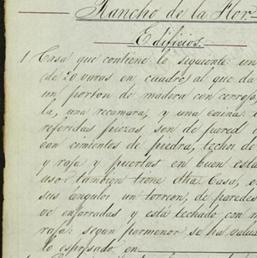 Rancho de la Flor
Edificios.
1 Casa que contiene lo siguiente un
de 20 varas en cuadro al que da
un porton de madera con cerroj
la, una recamara, y una cocina
referidas piezas son de pared
con cimientos de piedra, techos de
y raja y puertas en buen esta
aso: tambien tiene dha Casa, e
sus ángulos un torreon, de paredes
ve enjarradas y está techado con
raja: segun pormenor se ha valua
lo espresado en